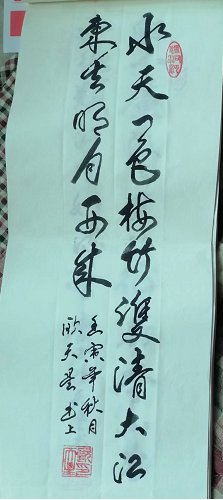 水天一色梅竹雙清大江
東去明月西來
壬寅年秋月
欣天
上